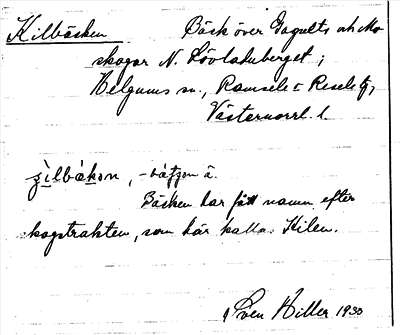 Kilbäcken Bäck över Gagnets och Mo
skogar N. Lövlaksberget;
Helgums sn., Ramsele o Resele tg,
Västernorrl. l.
Bäcken har fått namn efter
skogstrakten, som här kallas Kilen.
Sven Hiller 1930